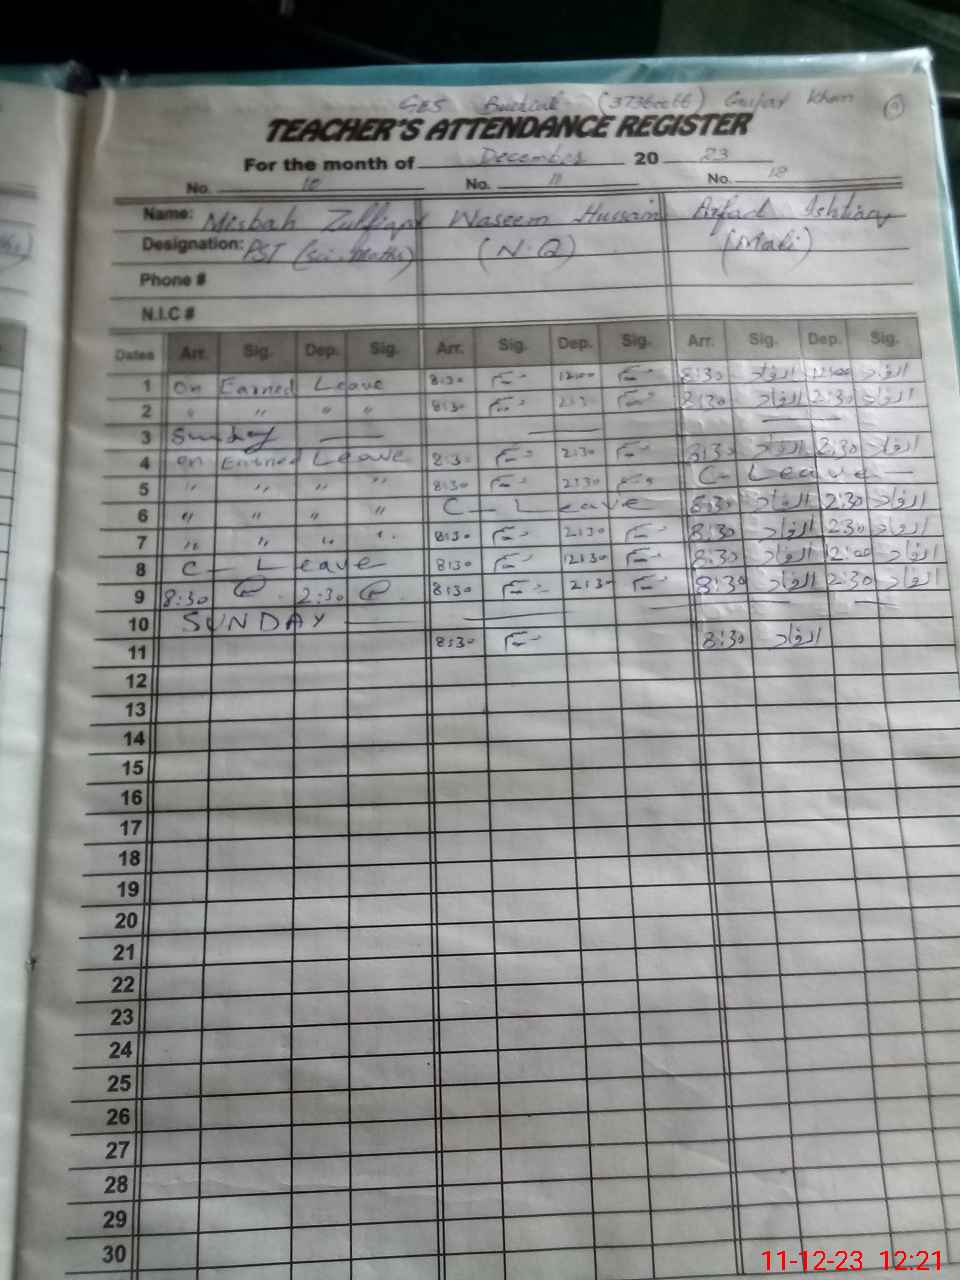 GES (37360066) Gujar Khan 9
TEACHER'S ATTENDANCE REGISTER
For the month of December 20 23
No. 10 No. 11 No. 12
Name: Misbah Zulfiqar Waseem Hussain Ishtiaq
Designation: PST (Sci-Maths) (N.Q) (Mali)
Phone #
N.I.C #
Dates Arr. Sig. Dep. Sig. Arr. Sig. Dep. Sig. Arr. Sig. Dep. Sig.
1 On Earned Leave 8:30 12:00 8:30 12:00
2 " " " " 8:30 2:30 8:30 2:30
3 Sunday
4 On Earned Leave 8:30 2:30 8:30 2:30
5 " " " " 8:30 2:30 C - Leave
6 " " " " C - Leave 8:30 2:30
7 " " " " 8:30 2:30 8:30 2:30
8 C - Leave 8:30 12:30 8:30 12:00
9 8:30 2:30 8:30 2:30 8:30 2:30
10 SUNDAY
11 8:30 8:30
12
13
14
15
16
17
18
19
20
21
22
23
24
25
26
27
28
29
30
11-12-23 12:21